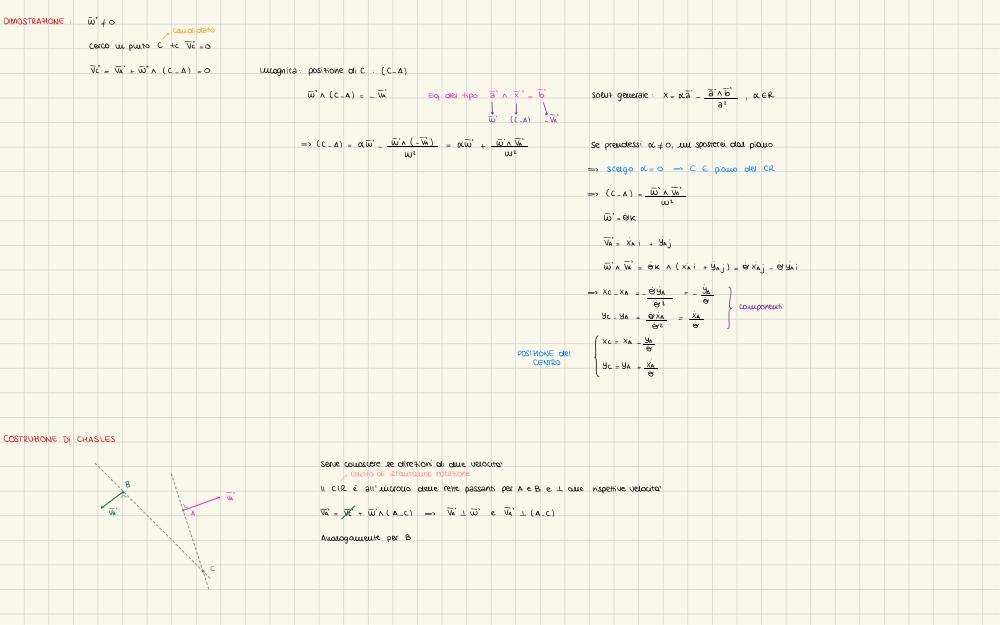 DIMOSTRAZIONE : ω̄ ≠ 0
candidato
cerco un punto C tc V̄c = 0
V̄c = V̄A + ω̄ ∧ (C-A) = 0
Incognita: posizione di C : (C-A)
ω̄ ∧ (C-A) = - V̄A
Eq del tipo ā ∧ x̄ = b̄
ω̄ (C-A) -V̄A
Soluz generale: x = αā - ā ∧ b̄ / a² , α ∈ R
=> (C-A) = αω̄ - ω̄ ∧ (-V̄A) / ω² = αω̄ + ω̄ ∧ V̄A / ω²
Se prendessi α ≠ 0, mi sposterei dal piano
=> scelgo α = 0 → C ∈ piano del CR
=> (C-A) = ω̄ ∧ V̄A / ω²
ω̄ = θ̇k
V̄A = ẋA i + ẏA j
ω̄ ∧ V̄A = θ̇k ∧ (ẋA i + ẏA j) = θ̇ẋA j - θ̇ẏA i
=> xc - xA = - θ̇ẏA / θ̇² = - ẏA / θ̇
componenti
yc - yA = θ̇ẋA / θ̇² = ẋA / θ̇
POSIZIONE del
CENTRO
xc = xA - ẏA / θ̇
yc = yA + ẋA / θ̇
COSTRUZIONE DI CHASLES
B
V̄B
A
V̄A
C
Serve conoscere le direzioni di due velocità
centro di istantanea rotazione
Il CIR è all'incrocio delle rette passanti per A e B e ⊥ alle rispettive velocità
V̄A = V̄c + ω̄ ∧ (A-C) => V̄A ⊥ ω̄ e V̄A ⊥ (A-C)
Analogamente per B